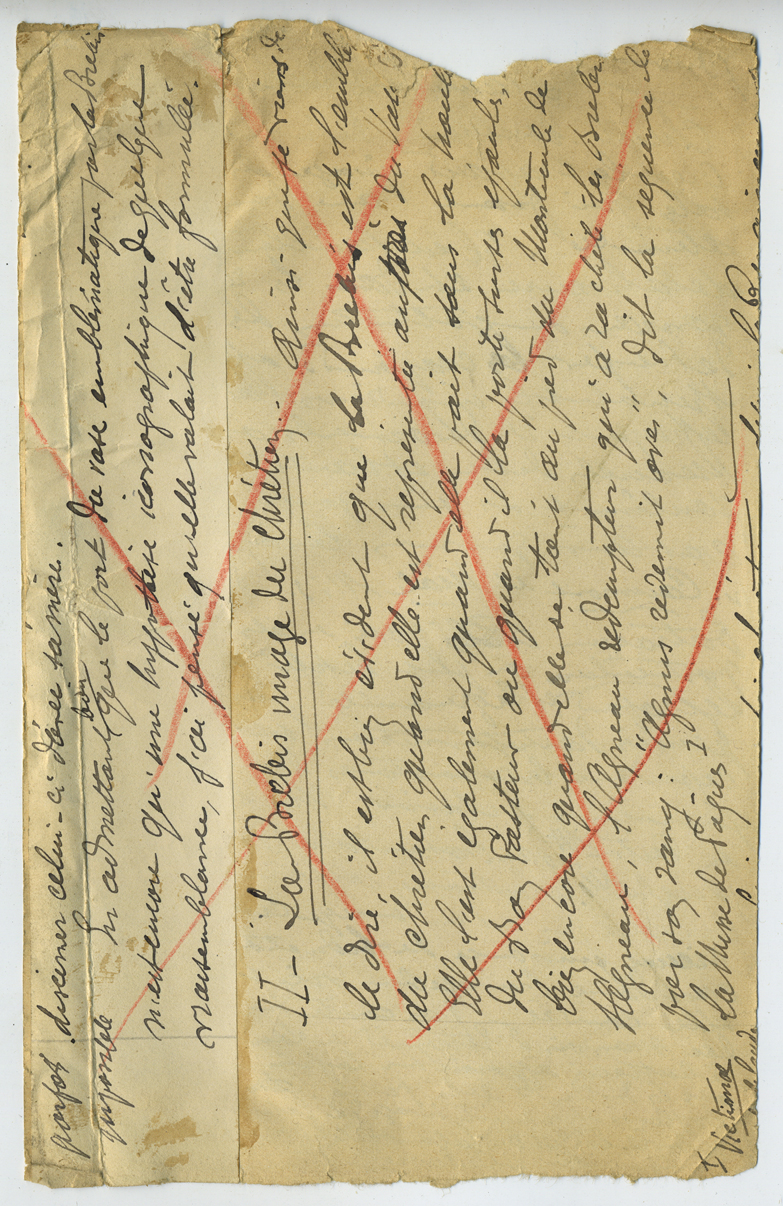 parfois discerner celui-ci d'avec sa mère.
En admettant bien que le port du vase emblématique par la Brebis
n'est encore qu'une hypothèse iconographique de quelque
vraisemblance, j'ai pensé qu'elle valait d'être formulée.
II - La Brebis image du Chrétien. Ainsi que je viens de
le dire il est bien évident que la Brebis est l'emblème
du chrétien quand elle est représentée auprès du Vase
Elle l'est également quand elle paît sous la
du Bon Pasteur ou quand il la porte sur ses épaules,
bien encore quand elle se tient au pied du Monticule de
l'Agneau, l'Agneau rédempteur qui a racheté les Brebis
par son sang : "Agnus redemit oves", dit la séquence de
la Messe de Pâques 1
1 Victimae